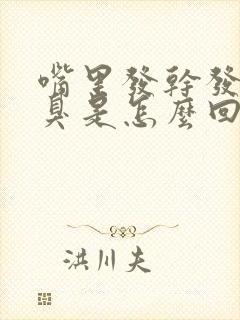 嘴里發幹發
臭是怎麼回
洪川夫